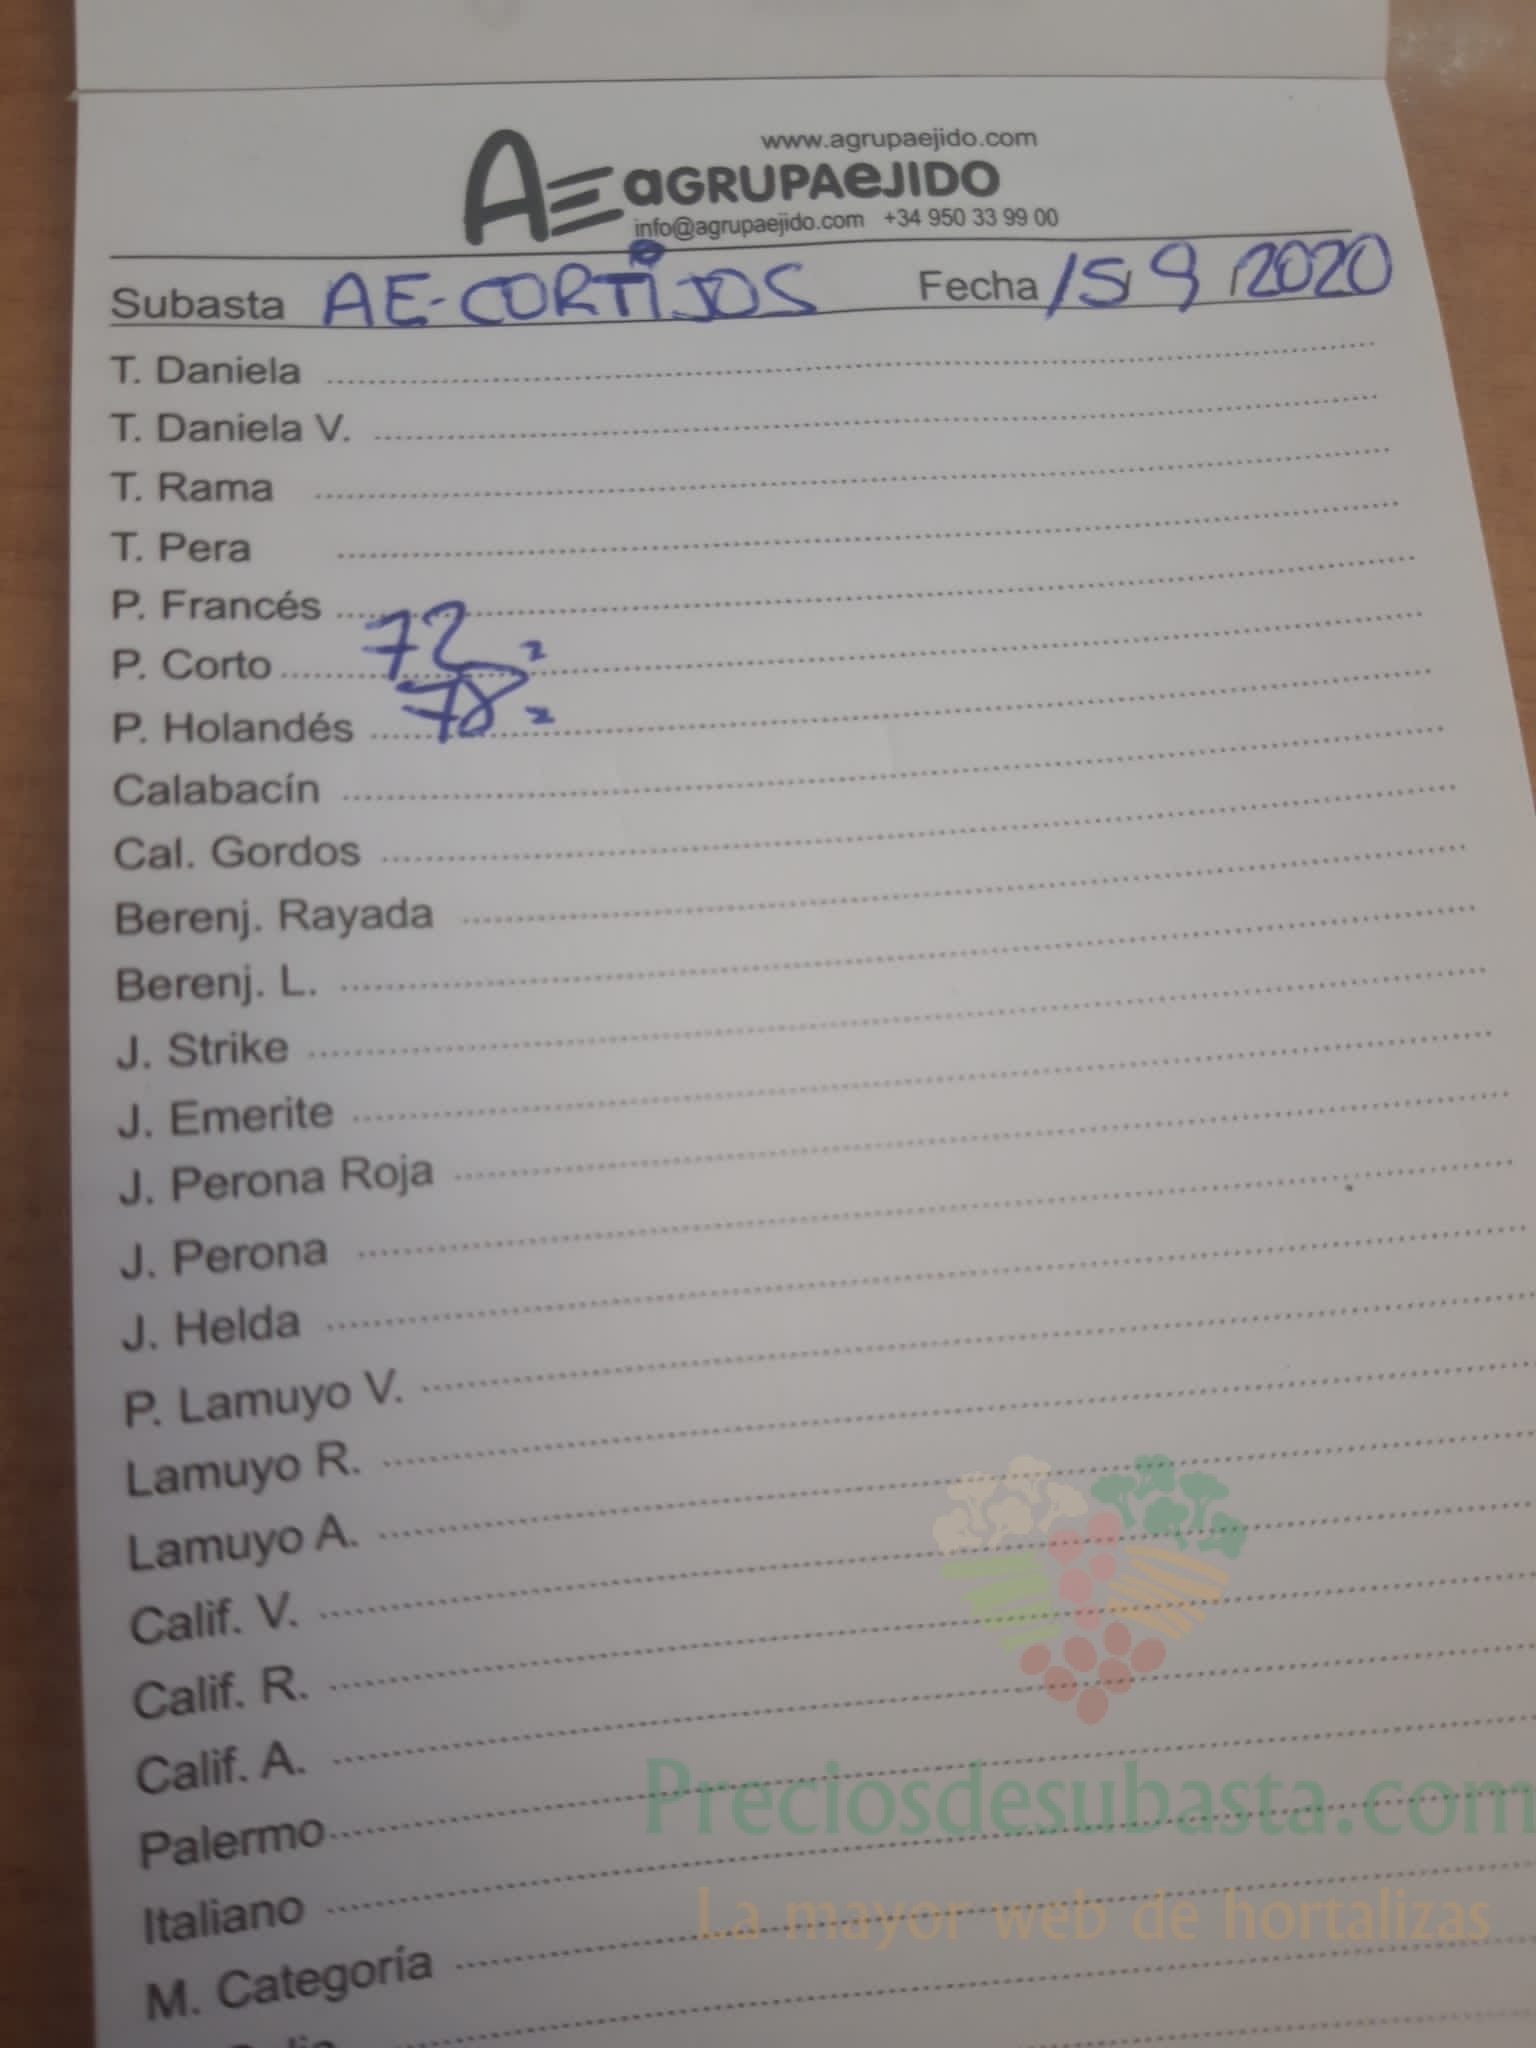 www.agrupaejido.com
AE aGRUPAeJIDO
info@agrupaejido.com +34 950 33 99 00
Subasta AE-CORTiJOS Fecha 15/9/2020
T. Daniela
T. Daniela V.
T. Rama
T. Pera
P. Francés
P. Corto 72 2
P. Holandés 78 2
Calabacín
Cal. Gordos
Berenj. Rayada
Berenj. L.
J. Strike
J. Emerite
J. Perona Roja
J. Perona
J. Helda
P. Lamuyo V.
Lamuyo R.
Lamuyo A.
Calif. V.
Calif. R.
Calif. A.
Palermo
Italiano
M. Categoría
Preciosdesubasta.com
La mayor web de hortalizas